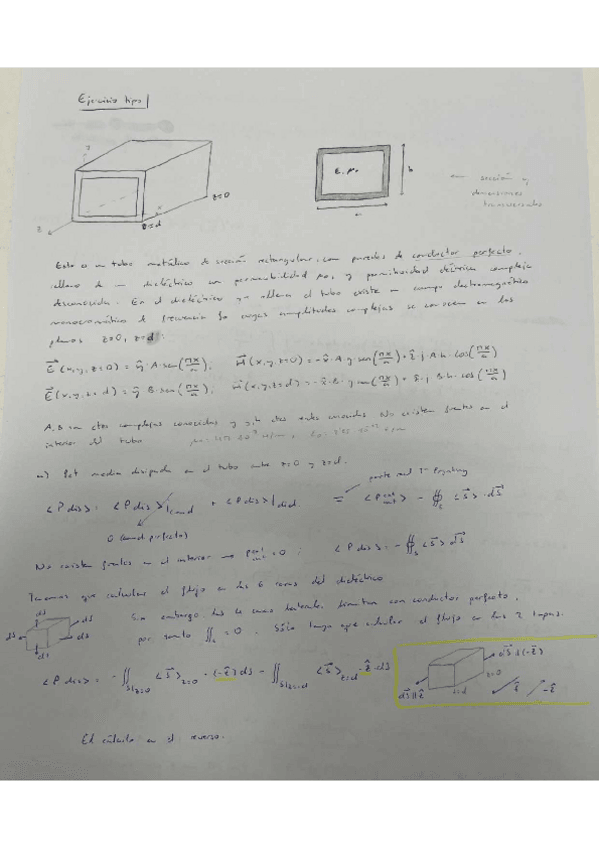 Ejercicio tipo 1
z=0
z=d
ε, μ₀
b
a
sección y
dimensiones
transversales
Esto es un tubo metálico de sección rectangular, con paredes de conductor perfecto,
relleno de un dieléctrico con permeabilidad μ₀, y permitividad eléctrica compleja
desconocida. En el dieléctrico que rellena el tubo existe un campo electromagnético
monocromático de frecuencia f₀ cuyas amplitudes complejas se conocen en los
planos z=0, z=d:
E⃗(x,y,z=0) = ŷ·A·sen(πx/a), H⃗(x,y,z=0) = -x̂·A·γ·sen(πx/a) + ẑ·j·A·h·cos(πx/a)
E⃗(x,y,z=d) = ŷ·B·sen(πx/a), H⃗(x,y,z=d) = -x̂·B·γ·sen(πx/a) + ẑ·j·B·h·cos(πx/a)
A, B son ctes complejas conocidas y γ, h ctes reales conocidas. No existen fuentes en el
interior del tubo
a) Pot media disipada en el tubo entre z=0 y z=d.
parte real Tª Poynting
<P dis> = <P dis>|cond + <P dis>|diel = <P> - ∯ <S⃗>·dS⃗
0 (cond. perfecto)
No existen fuentes en el interior → P = 0 ; <P dis> = - ∯ <S⃗> dS⃗
Tenemos que calcular el flujo en las 6 caras del dieléctrico
Sin embargo, las 4 caras laterales limitan con conductor perfecto,
por tanto ∬ = 0. Sólo tengo que calcular el flujo en las 2 tapas.
dS
dS
dS
dS
dS
<P dis> = - ∬S|z=0 <S⃗>z=0 · (-ẑ) ds - ∬S|z=d <S⃗>z=d · ẑ · ds
dS⃗ || (-ẑ)
z=0
z=d
dS⃗ || ẑ
ẑ
-ẑ
El cálculo en el reverso.